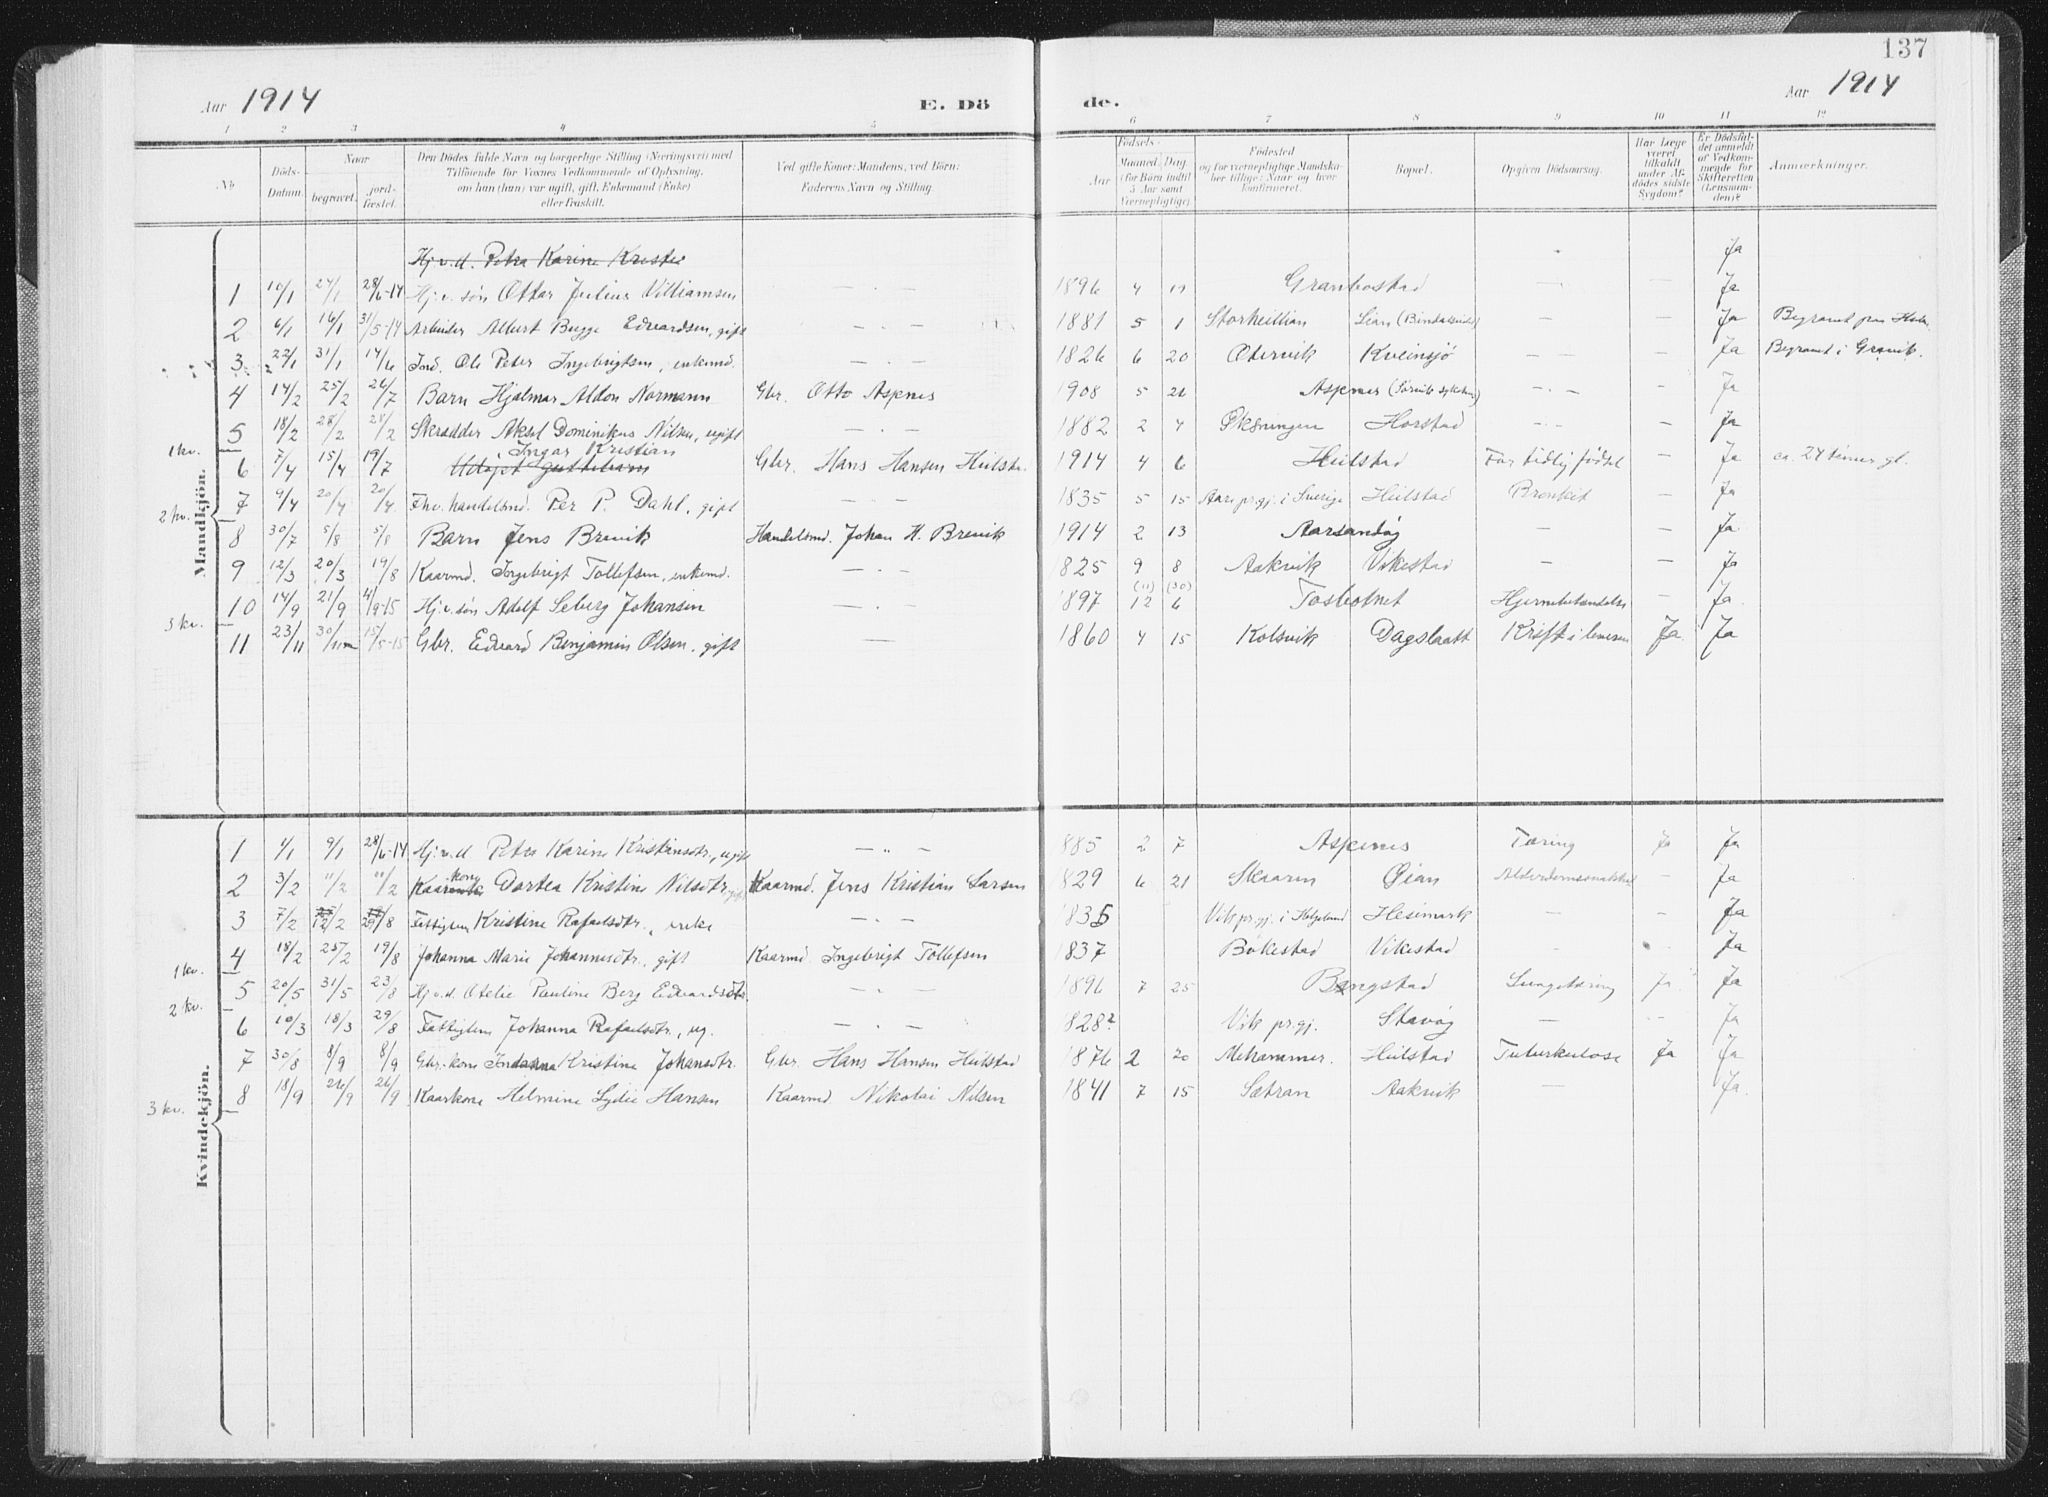 137
Aar 1914 E. Dö de. Aar 1914
1 2 3 4 5 6 7 8 9 10 11 12
No. Döds-Datum. Naar begravet. jord-fæstet. Den Dödes fulde Navn og borgerlige Stilling (Næringsvei) med Tilföiende for Voxnes Vedkommende af Oplysning, om han (hun) var ugift, gift, Enkemand (Enke) eller fraskilt. Ved gifte Koner: Mandens, ved Börn: Faderens Navn og Stilling. Födsels- Aar Maaned. Dag. (for Börn indtil 5 Aar samt Værnepligtige). Födested og for værnepligtige Mandskaber tillige: Naar og hvor konfirmeret. Bopæl. Opgiven Dödsaarsag. Har Læge været tilkaldt under Afdödes sidste Sygdom? Er Dödsfaldet anmeldt af Vedkommende for Skifteretten (Lensmanden)? Anmærkninger.
Mandkjön.
Hj.v.d. Petra Karine Kristia Ja
1 10/1 27/1 28/6-14 Hj. v. søn Ottar Julius Villiamsen — . — 1896 4 Granbostad — — Ja
2 6/1 16/1 31/5-14 Arbeider Albert Bugge Edvardsen, gift — . — 1881 5 1 Storheillian Lian (Bindalseidet) — — Ja Begravet paa
3 22/1 31/1 14/6 Ind. Ole Peter Ingebrigtsen, enkemd. — . — 1826 6 20 Otervik Kveinsjö — — Ja Begravet i Gravik.
4 14/2 25/2 26/7 Barn Hjalmar Aldon Normann Gbr. Otto Aspenes 1908 5 21 Aspenes (Sørvik sykehus) — . — Ja
5 18/2 28/2 28/2 Skrædder Aksel Dominikus Nilsen, ugift — . — 1882 2 4 Øksningen Horstad — . — — Ja
1 kv.
Ingar Kristian
6 7/4 15/4 19/7 Udøpt guttebarn Gbr. Hans Hansen Heilstad 1914 4 6 Heilstad For tidlig fødsel — Ja ca. 24 timer gl.
7 9/4 20/4 20/4 Fhv. handelsmd. Per P. Dahl, gift — . — 1835 5 15 Aare pr.gj. i Sverige Heilstad Bronkit — Ja
2 kv.
8 30/7 5/8 5/8 Barn Jens Brevik Handelsmd. Johan H. Brevik 1914 2 13 Aarsandøg — — Ja
9 12/3 20/3 19/8 Kaarmd. Ingebrigt Tollefsen, enkemd. — . — 1825 9 8 Aakvik Vikestad — — Ja
(11) (30)
10 14/9 21/9 4/9-15 Hj. v. søn Adolf Seberg Johansen — . — 1897 12 6 Tosbotnet Hjernebetændelse — Ja
3 kv.
11 23/11 30/11 15/5-15 Gbr. Edvard Benjamin Olsen, gift — 1860 4 15 Kolsvik Dagslaatt Kræft i leveren Ja Ja
Kvindekjön.
1 1/1 9/1 28/6-14 Hj. v. d Petra Karine Kristiansdtr., ugift — „ — 885 2 7 Aspenes Tæring Ja Ja
kone
2 3/2 11/2 11/2 Kaarenke Dortea Kristine Nilsdtr. gift Kaarmd. Jens Kristian Larsen 1829 6 21 Skaaren Øian Alderdomssvakhet — Ja
3 7/2 12/2 29/8 Fattiglem Kristine Rafaelsdtr., enke — . — 1835 Vik pr.gj. i Helgeland Hesimark — — Ja
4 18/2 25/2 19/8 Johanna Marie Johannesdtr., gift Kaarmd Ingebrigt Tollefsen 1837 Bökestad Vikestad — Ja
1 kv.
5 20/5 31/5 23/8 Hj. v. d. Otelie Pauline Berg Edvardsdtr. — . — 1896 7 25 Bangstad Lungetæring Ja Ja
2 kv.
6 10/3 18/3 29/8 Fattiglem Johanna Rafaelsdtr., ug. — . — 1828? Vik pr.gj. Stavøg — — Ja
7 30/8 8/9 8/9 Gbr.-kone Indanna Kristine Johansdtr. Gbr. Hans Hansen Heilstad 1876 2 20 Mehammer. Heilstad Tuberkulose Ja Ja
8 18/9 26/9 26/9 Kaarkone Helmine Lydie Hansen Kaarmd Nikolai Nilsen 1841 7 15 Sætran Aakvik — Ja.
3 kv.